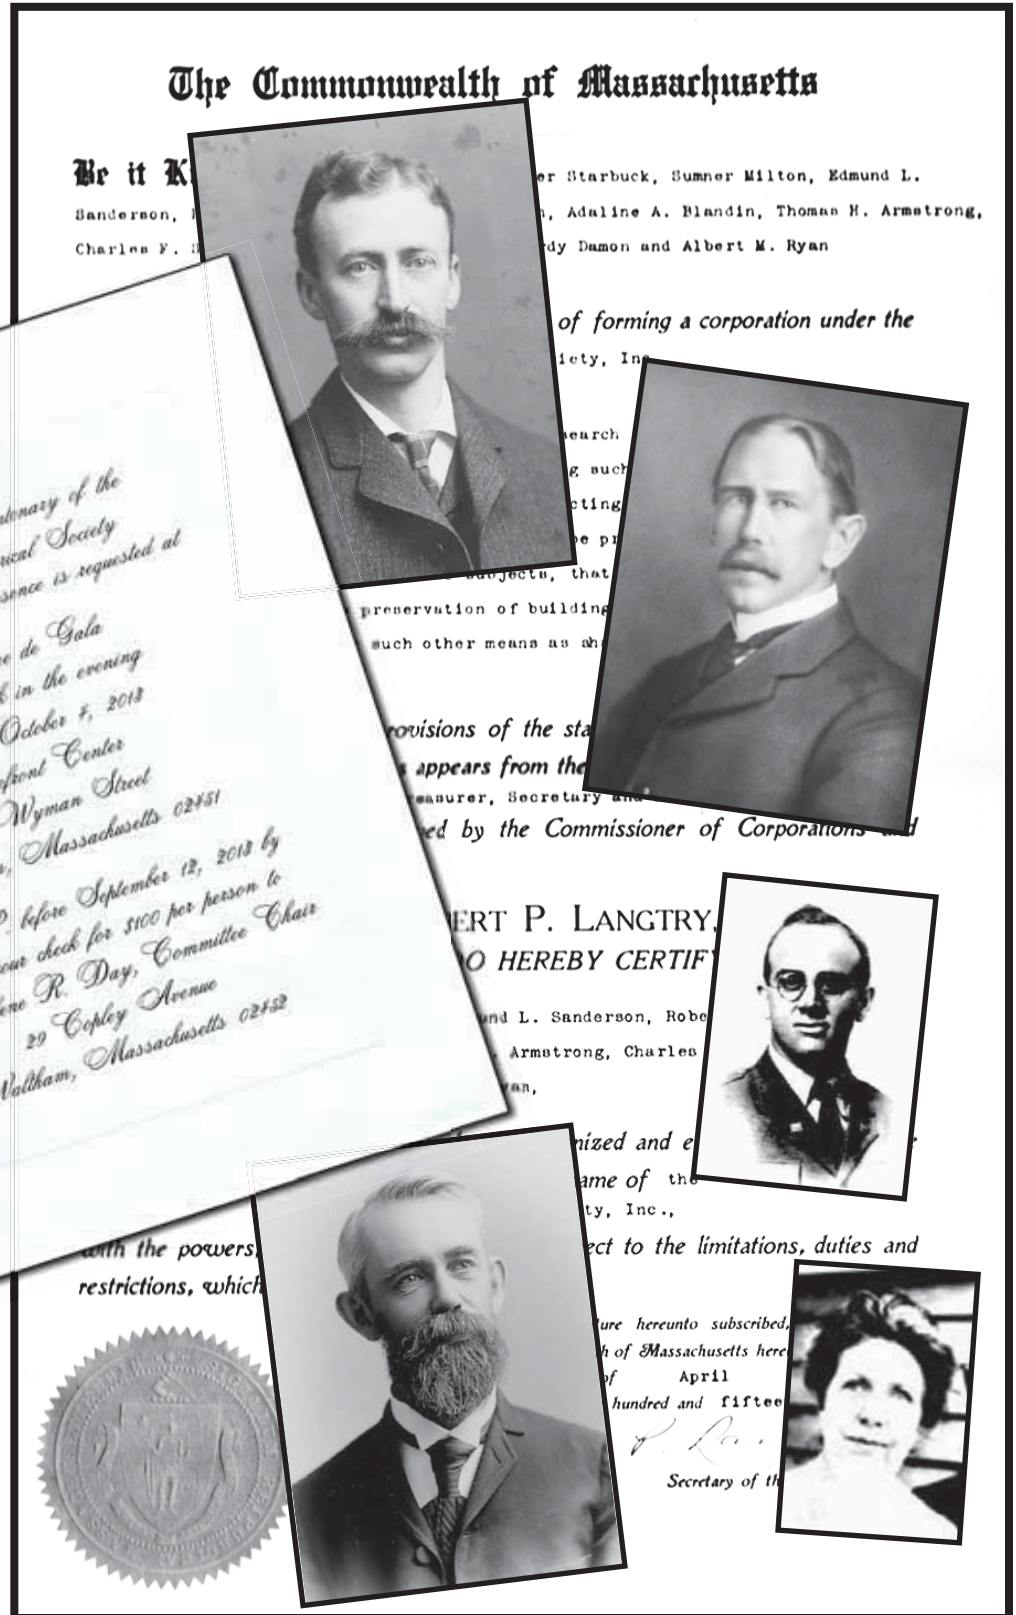 The Commonwealth of Massachusetts
Be it
er Starbuck, Sumner Milton, Edmund L.
Sanderson,
, Adaline A. Blandin, Thomas H. Armstrong,
Charles F.
dy Damon and Albert M. Ryan
of forming a corporation under the
iety, Inc
earch
g such
cting
be pr
subjects, that
preservation of building
such other means as sha
rovisions of the sta
appears from the
easurer, Secretary and
ed by the Commissioner of Corporations and
ERT P. LANGTRY,
O HEREBY CERTIF
und L. Sanderson, Robe
Armstrong, Charles
yan,
nized and e
ame of the
ty, Inc.,
with the powers,
ect to the limitations, duties and
restrictions, which
ure hereunto subscribed,
h of Massachusetts here
of April
hundred and fiftee
Secretary of th
ntenary of the
rical Society
sence is requested at
e de Gala
k in the evening
October 4, 2013
front Center
Wyman Street
, Massachusetts 02451
P. before September 12, 2013 by
our check for $100 per person to
ene R. Day, Committee Chair
29 Copley Avenue
Waltham, Massachusetts 02452